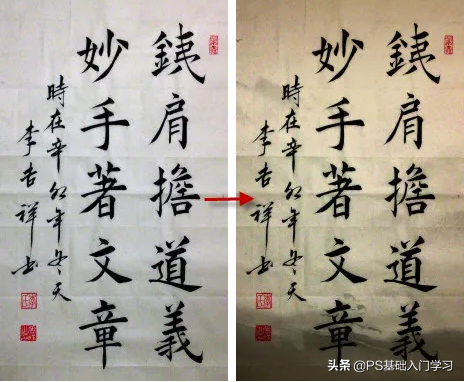 銕肩擔道義
妙手著文章
時在辛卯年冬天
李吉祥书
銕肩擔道義
妙手著文章
時在辛卯年冬天
李吉祥书
头条 @PS基础入门学习